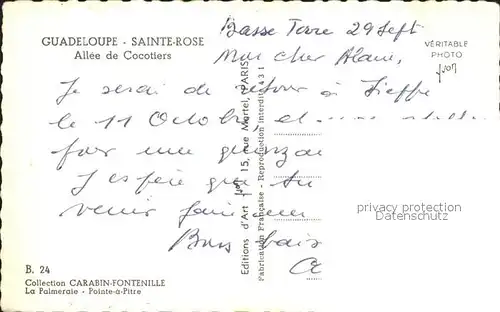 GUADELOUPE - SAINTE-ROSE
Allée de Cocotiers
Basse Terre 29 Sept
Mon cher Alain,
VÉRITABLE
PHOTO
Je serai de retour à
le 11 Octobre, et
pour une quinzai
J'espère que tu
venir
Bons baisers
Editions d'Art 15, rue Martel, PARIS
Fabrication Française - Reproduction interdite 431
privacy protection
Datenschutz
B. 24
Collection CARABIN-FONTENILLE
La Palmeraie - Pointe-à-Pitre